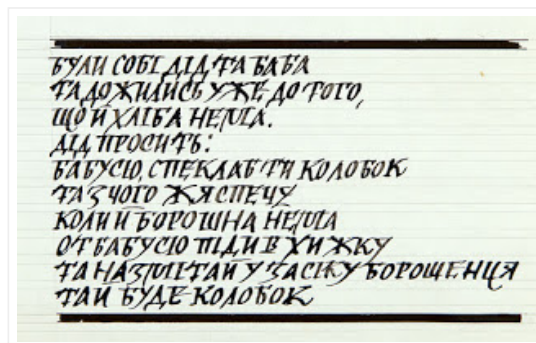 БУЛИ СОБІ ДІД ТА БАБА
ТА ДОЖИЛИСЬ УЖЕ ДО ТОГО,
ЩО Й ХЛІБА НЕМА.
ДІД ПРОСИТЬ:
БАБУСЮ, СПЕКЛАБ ТИ КОЛОБОК
ТА З ЧОГО Ж Я СПЕЧУ
КОЛИ Й БОРОШНА НЕМА
ОТ БАБУСЮ ПІДИ В ХИЖКУ
ТА НАЗМІТАЙ У ЗАСІКУ БОРОШЕНЦЯ
ТАЙ БУДЕ КОЛОБОК